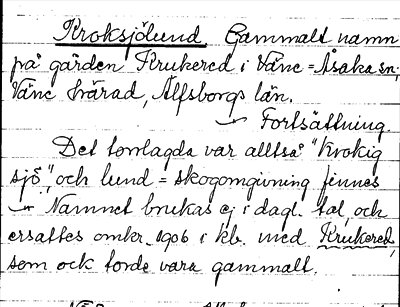 Kroksjölund Gammalt namn
på gården Krukered i Väne=Åsaka sn,
Väne härad, Älfsborgs län.
Fortsättning.
Det torrlagda var alltså "Krokig
sjö", och lund = skogomgivning finnes
Namnet brukas ej i dagl. tal, och
ersattes omkr. 1906 i kb. med Krukered,
som ock torde vara gammalt.